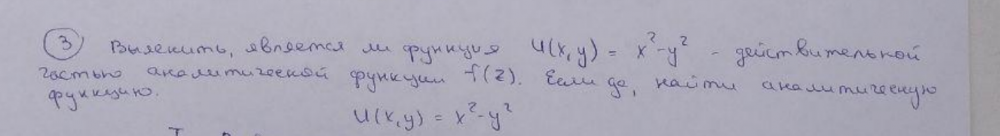 ③ Выяснить, является ли функция U(x,y) = x²-y² - действительной
частью аналитической функции f(z). Если да, найти аналитическую
функцию.
U(x,y) = x²-y²